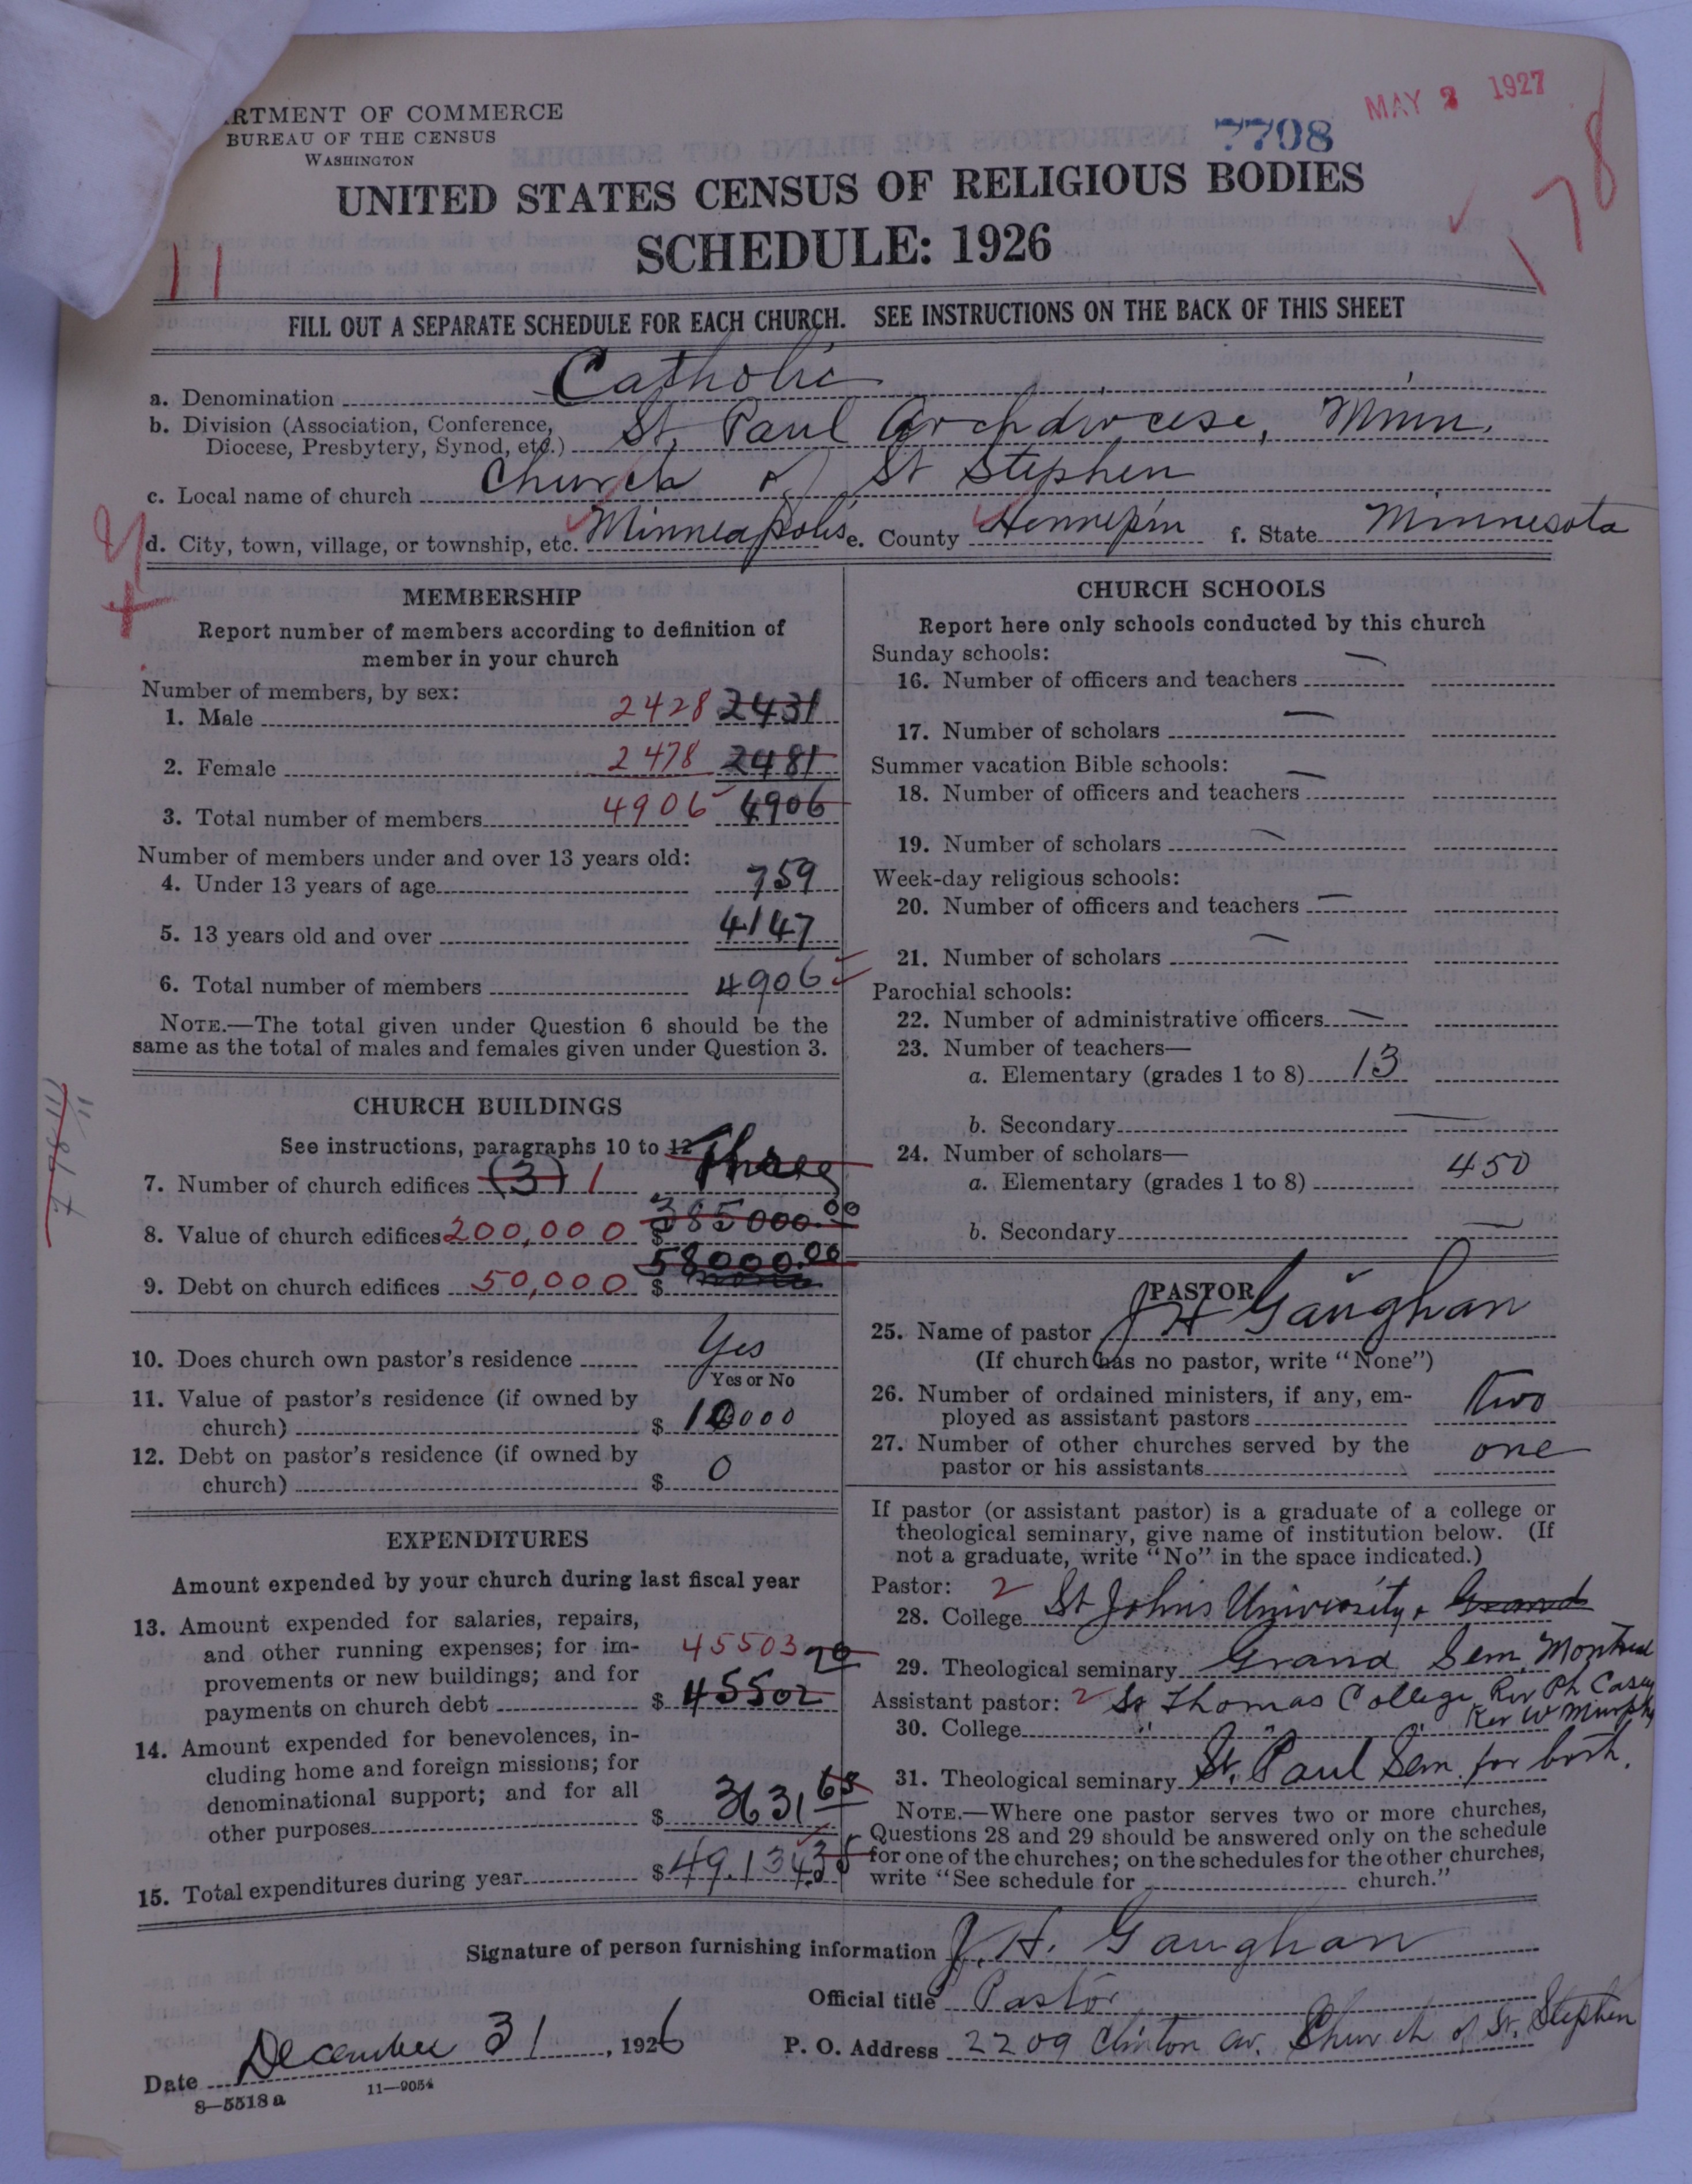 RTMENT OF COMMERCE
BUREAU OF THE CENSUS
WASHINGTON
7708
MAY 2 1927
178
UNITED STATES CENSUS OF RELIGIOUS BODIES
SCHEDULE: 1926
11
FILL OUT A SEPARATE SCHEDULE FOR EACH CHURCH. SEE INSTRUCTIONS ON THE BACK OF THIS SHEET
a. Denomination Catholic
b. Division (Association, Conference,
Diocese, Presbytery, Synod, etc.) St. Paul Archdiocese, Minn.
c. Local name of church Church of St Stephen
d. City, town, village, or township, etc. Minneapolis e. County Hennepin f. State Minnesota
MEMBERSHIP
Report number of members according to definition of
member in your church
Number of members, by sex:
1. Male 2428 2431
2. Female 2478 2481
3. Total number of members 4906 4906
Number of members under and over 13 years old:
4. Under 13 years of age 759
5. 13 years old and over 4147
6. Total number of members 4906
NOTE.—The total given under Question 6 should be the
same as the total of males and females given under Question 3.
CHURCH BUILDINGS
See instructions, paragraphs 10 to 12
7. Number of church edifices (3) 1 Three
8. Value of church edifices 200,000 $ 385000.00
9. Debt on church edifices 50,000 $ 58000.00
10. Does church own pastor's residence Yes
Yes or No
11. Value of pastor's residence (if owned by
church) $ 10000
12. Debt on pastor's residence (if owned by
church) $ 0
EXPENDITURES
Amount expended by your church during last fiscal year
13. Amount expended for salaries, repairs,
and other running expenses; for im-
provements or new buildings; and for
payments on church debt 45503 $ 45502 70
14. Amount expended for benevolences, in-
cluding home and foreign missions; for
denominational support; and for all
other purposes $ 3631 68
15. Total expenditures during year $ 49.134 38
CHURCH SCHOOLS
Report here only schools conducted by this church
Sunday schools:
16. Number of officers and teachers —
17. Number of scholars —
Summer vacation Bible schools:
18. Number of officers and teachers —
19. Number of scholars —
Week-day religious schools:
20. Number of officers and teachers —
21. Number of scholars —
Parochial schools:
22. Number of administrative officers —
23. Number of teachers—
a. Elementary (grades 1 to 8) 13
b. Secondary —
24. Number of scholars—
a. Elementary (grades 1 to 8) 450
b. Secondary —
PASTOR
25. Name of pastor J H Gaughan
(If church has no pastor, write "None")
26. Number of ordained ministers, if any, em-
ployed as assistant pastors two
27. Number of other churches served by the
pastor or his assistants one
If pastor (or assistant pastor) is a graduate of a college or
theological seminary, give name of institution below. (If
not a graduate, write "No" in the space indicated.)
Pastor: 2
28. College St Johns University & Grand
29. Theological seminary Grand Sem. Montreal
Assistant pastor: 2 St Thomas College Rev Ph Casey
30. College " " " Rev W Murphy
31. Theological seminary St. Paul Sem. for both.
NOTE.—Where one pastor serves two or more churches,
Questions 28 and 29 should be answered only on the schedule
for one of the churches; on the schedules for the other churches,
write "See schedule for church."
Signature of person furnishing information J. H. Gaughan
Official title Pastor
Date December 31, 1926
P. O. Address 2209 Clinton av. Church of St. Stephen
8—5518 a
11—9054